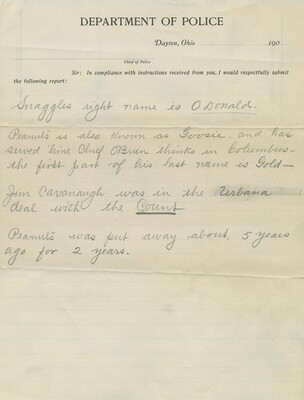 DEPARTMENT OF POLICE
Dayton, Ohio 190
Chief of Police
Sir: In compliance with instructions received from you, I would respectfully submit
the following report:
Snaggles right name is O Donald.
Peanuts is also known as Goosie, and has
served time Chief OBrien thinks in Columbus-
the first part of his last name is Gold-
Jim Cavanaugh was in the Urbana
deal with the Count
Peanuts was put away about 5 years
ago for 2 years.